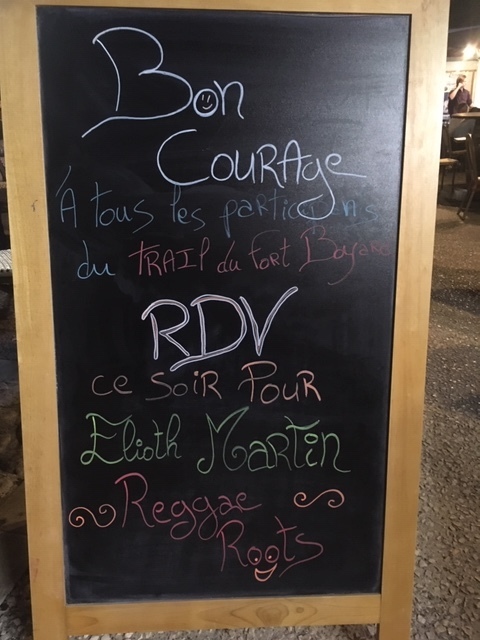 Bon
Courage
À tous les participants
du TRAIL du Fort Boyard
RDV
ce soir Pour
Elioth Martin
Reggae
Roots